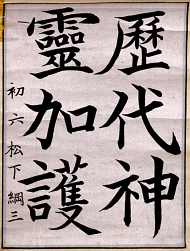 歷代神
靈加護
初六松下綱三